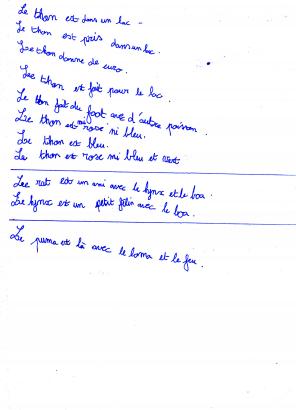 Le thon est dans un lac -
Le thon est pris dans un lac.
Le thon donne de euro.
Le thon est fait pour le lac.
Le thon fait du foot avec d'autre poisson.
Le thon est ni rose ni bleu.
Le thon est bleu.
Le thon est rose mi bleu et vert
Le rat est un ami avec le lynx et le boa.
Le lynx est un petit félin avec le boa.
Le puma est là avec le lama et le feu.